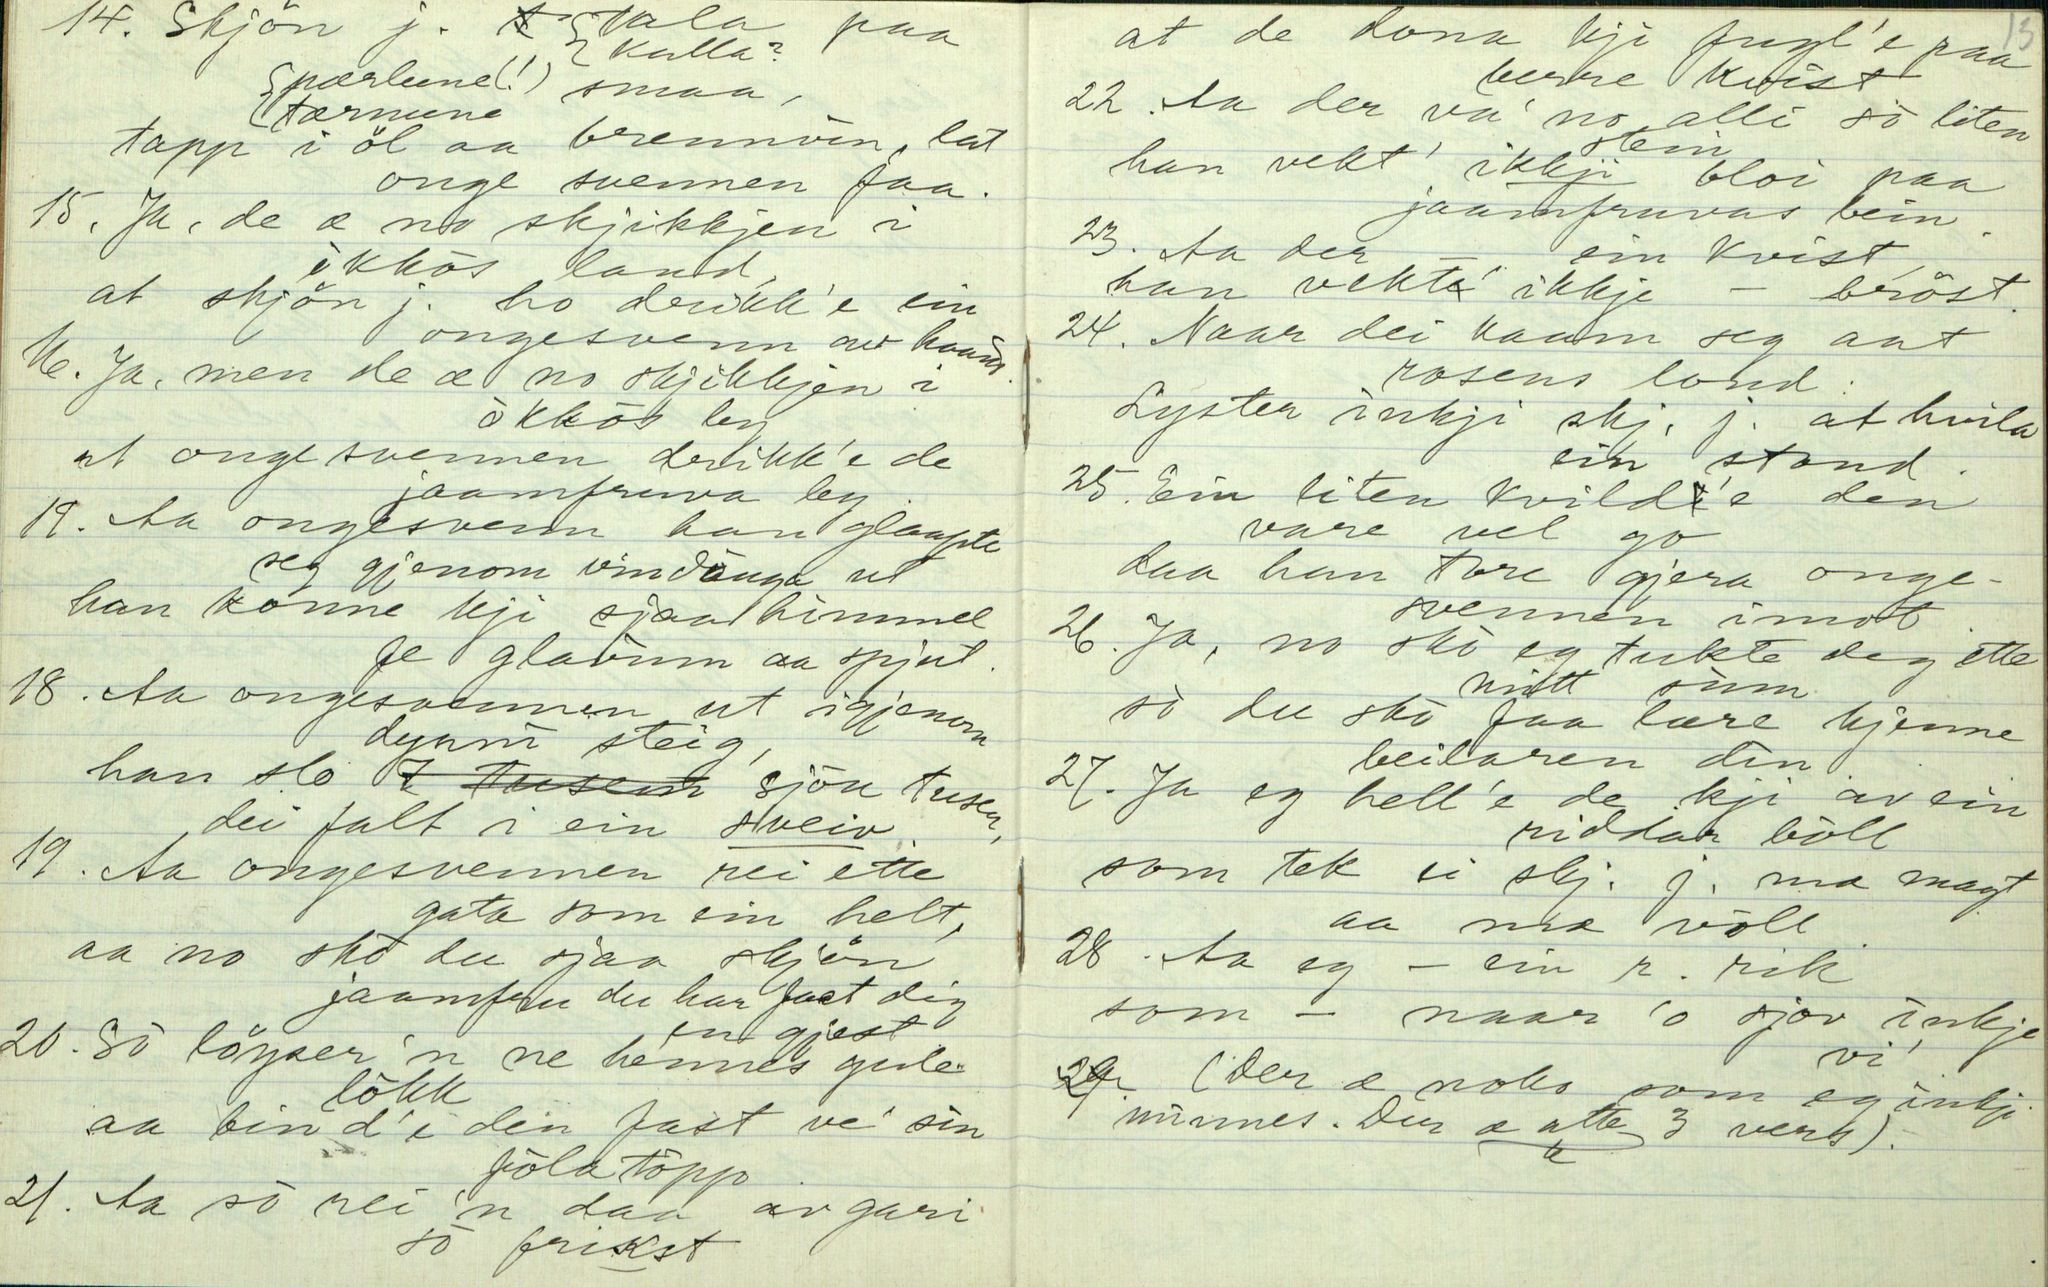 14. Skjön j. tala paa
kalla?
pærlune(!) smaa,
tærnune
tapp i öl aa brennvin, lat
onge svennen faa.
15. Ja, de æ no skjikkjen i
økkøs land,
at skjön j. ho drikk'e ein
ongesvenn av haand.
16. Ja, men de æ no skjikkjen i
økkøs leg
at ongesvennen drikk'e de
jaamfruva leg.
19. Aa ongesvenn han glaapte
seg gjenom vindauga ut
han konne kji sjaa himmel
fe glavinn aa spjut.
18. Aa ongesvennen ut igjenom
dynni steig,
han slo 7 tusen sjöu tusen,
dei falt i ein sveiv
19. Aa ongesvennen rei ette
gata som ein helt,
aa no sko du sjaa skjön
jaamfru du har faat dig
en gjest
20. Sö löyser'n ne hennes gule
lökk
aa bind'e den fast ve' sin
föla töpp
21. Aa sö rei'n daa av gari
sö friskst
13
at de dona kji fugl'e paa
berre kvist
22. Aa der va' no alli sö liten
stein
han vekt' ikkji bloi paa
jaamfruvas bein.
23. Aa der – ein kvist,
han vekte' ikkje – bröst.
24. Naar dei kaam seg aat
rosens lond.
Lyster inkji skj. j. at hvila
ein stond.
25. Ein liten kvild'e den
vare vel go
daa han tore gjera onge-
svennen imot.
26. Ja, no sko eg tukte deg ette
mitt sinn
sö du sko faa lære kjenne
beilaren din.
27. Ja eg hell'e de kji av ein
riddar böll
som tek ei skj. j. mæ magt
aa mæ völl.
28. Aa eg – ein r. rik
som – naar 'o sjøv inkje
vi'
29. (Der æ noko som eg inkji
minnes. Der æ atte 3 vers).